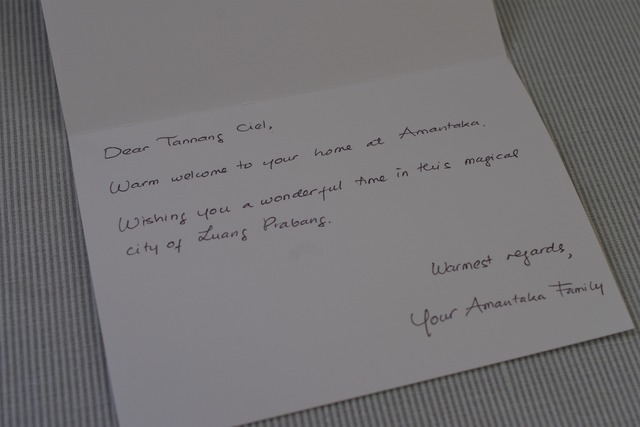 Dear Tannang Ciel,
Warm welcome to your home at Amantaka.
Wishing you a wonderful time in this magical
city of Luang Prabang.
Warmest regards,
Your Amantaka Family